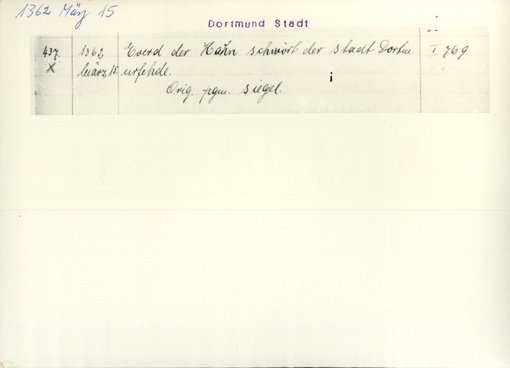 1362 März 15
Dortmund Stadt
437. 1362 Everd der Hahn schwört der Stadt Dortm. I 769
X März 15 urfehde.
Orig. pgm. Siegel.